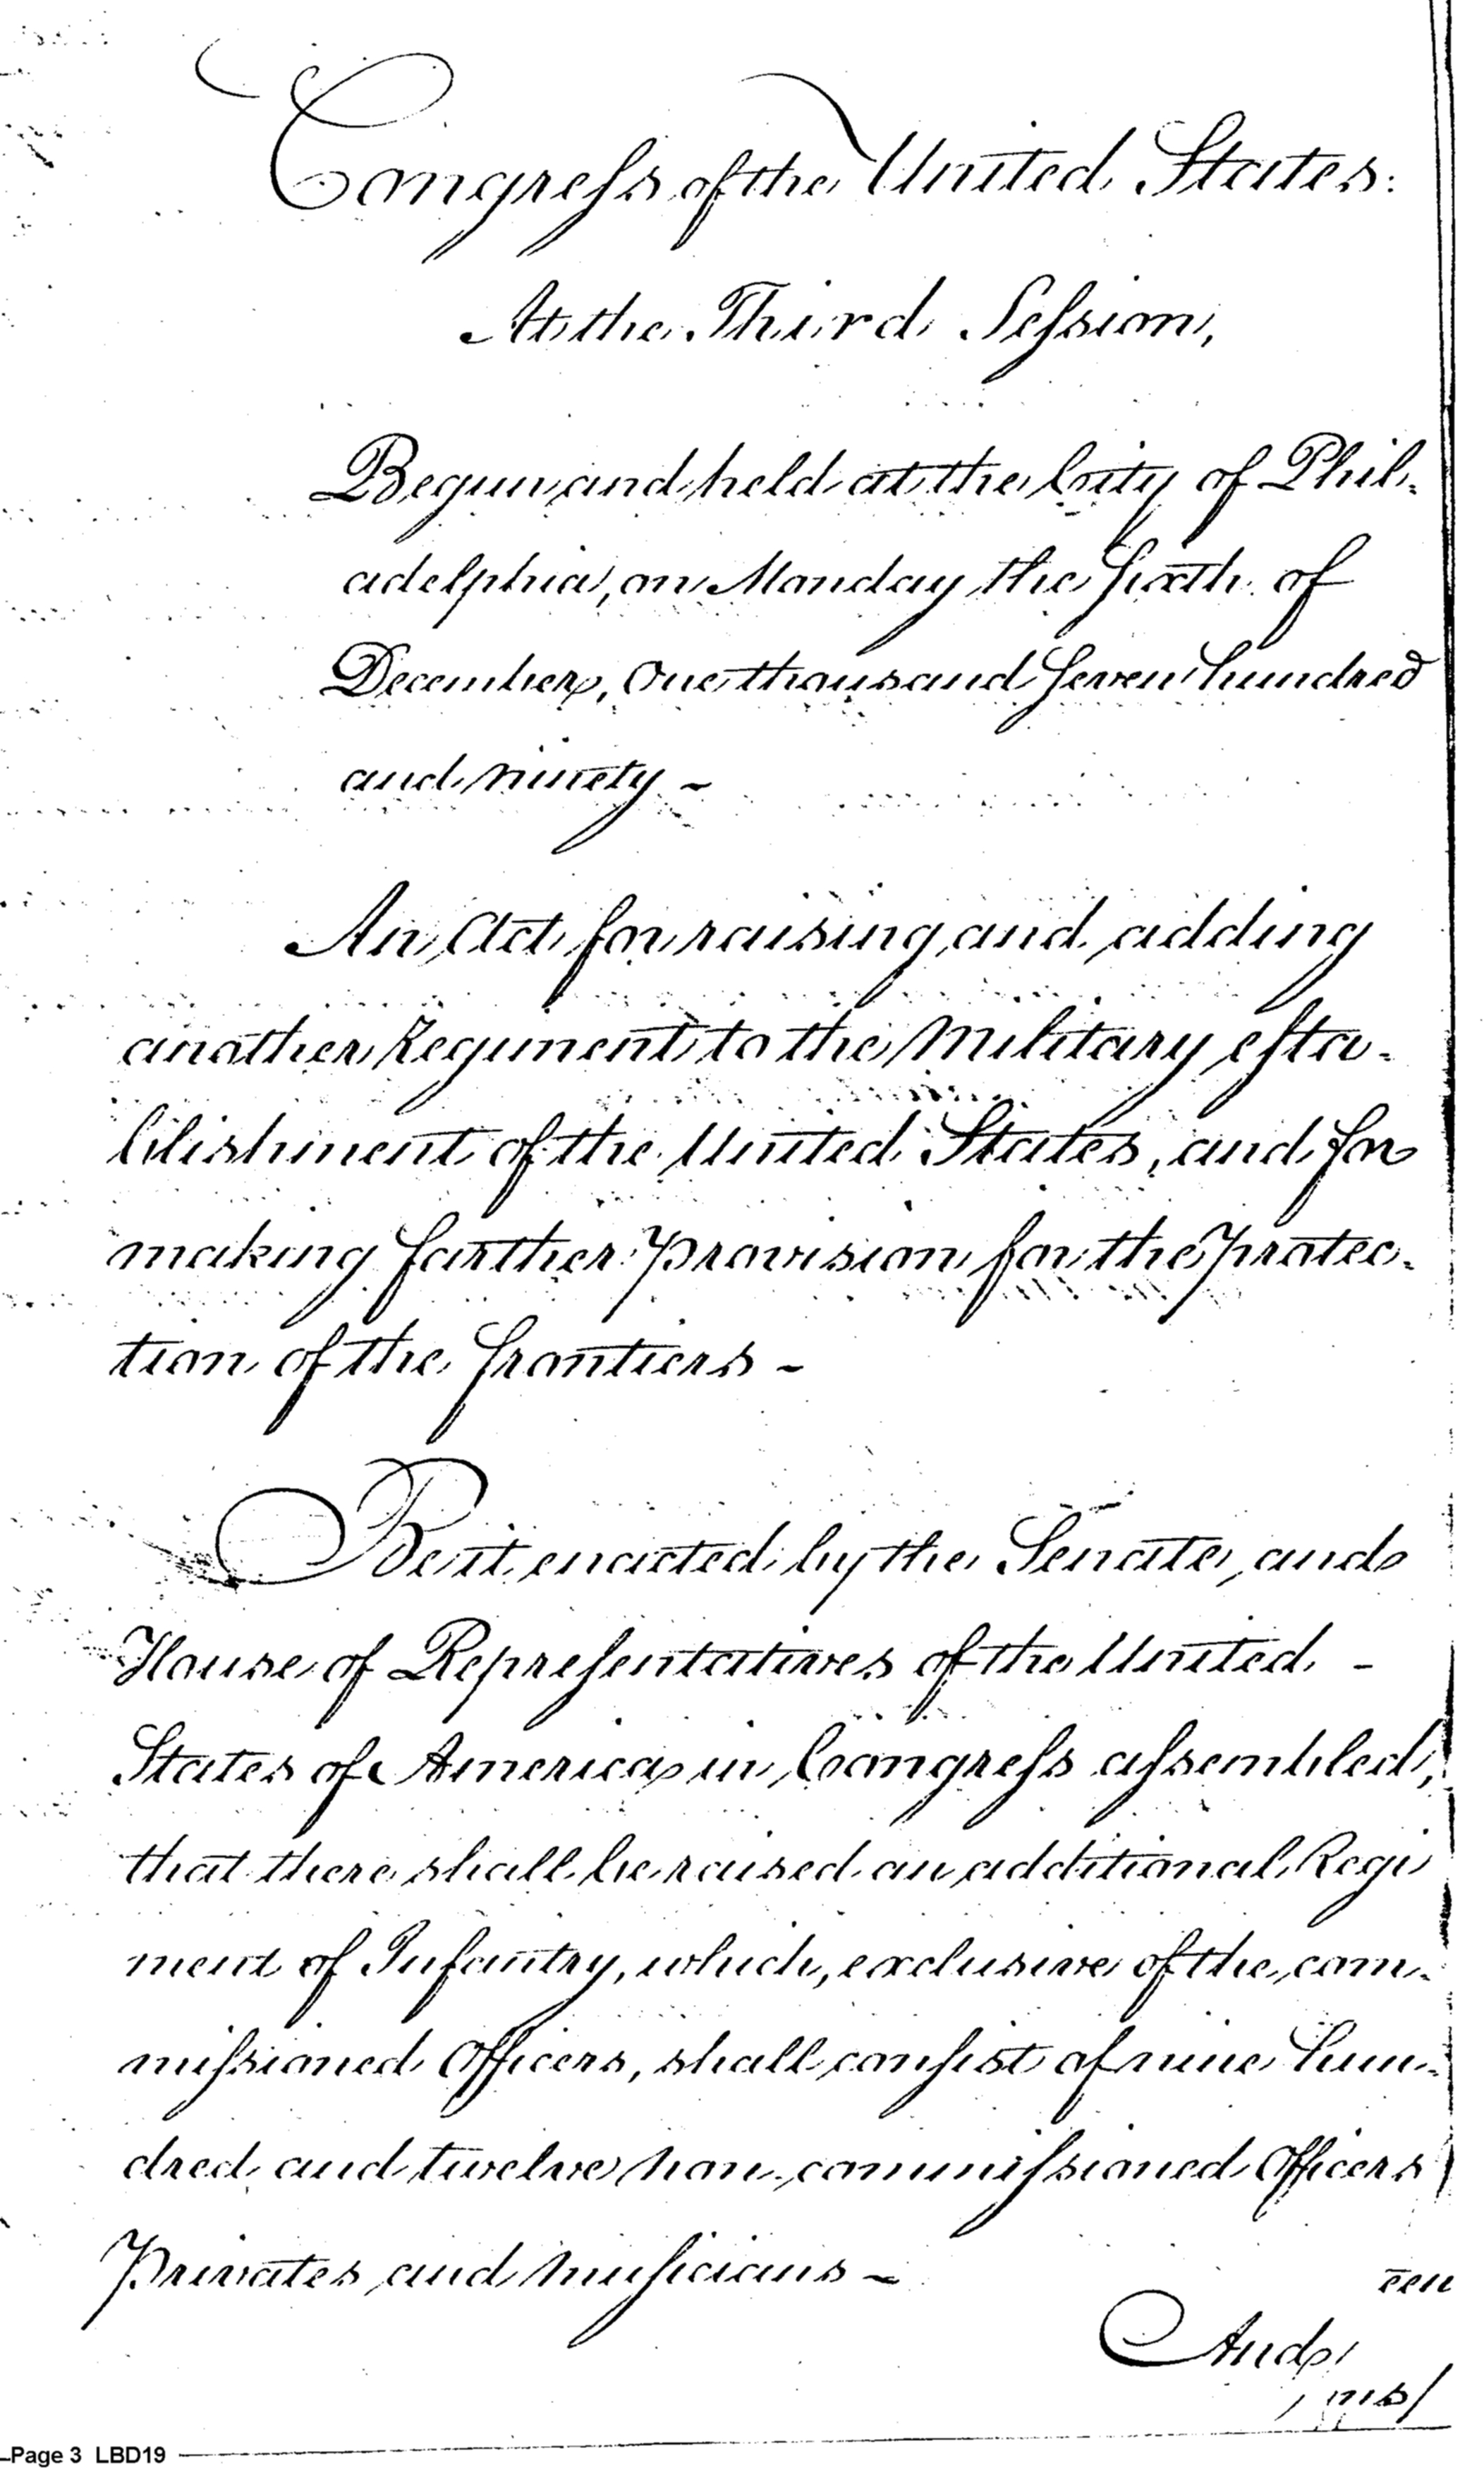 Congreſs of the United States:
At the Third Seſsion,
Begun and held at the City of Phil-
adelphia, on Monday the ſixth of
December, one thousand ſeven hundred
and ninety -
An Act for raising and adding
another Regiment to the Military eſta-
blishment of the United States, and for
making farther provision for the protec-
tion of the frontiers -
Be it enacted by the Senate and
House of Repreſentatives of the United -
States of America in Congreſs aſsembled,
that there shall be raised an additional Regi
ment of Infantry, which, exclusive of the com-
miſsioned Officers, shall conſist of nine hun-
dred and twelve non-commiſsioned Officers
Privates and muſicians -
een
And
ms
Page 3 LBD19